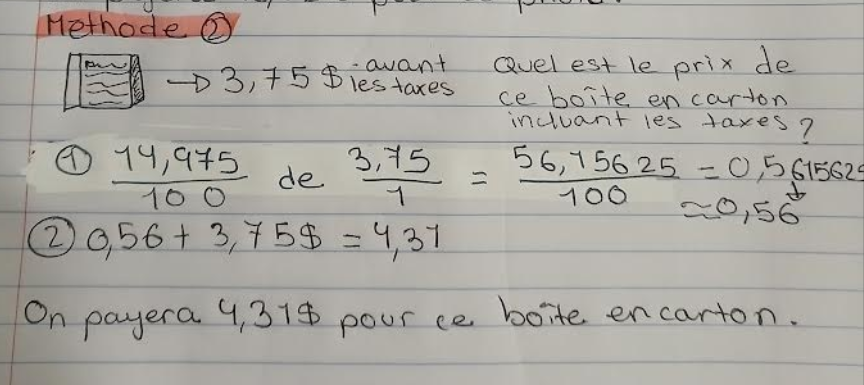 Methode ②
→ 3,75 $ avant les taxes
Quel est le prix de
ce boîte en carton
incluant les taxes?
① 14,975/100 de 3,75/1 = 56,15625/100 = 0,5615625
≈ 0,56
② 0,56 + 3,75 $ = 4,31
On payera 4,31$ pour ce boîte en carton.